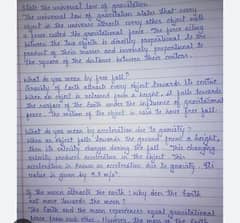 State the universal law of gravitation
The universal law of gravitation states that every
object in the universe attracts every other object with
a force called the gravitational force. The force acting
between the two objects is directly proportional to the
product of their masses and inversely proportional to
the square of the distance between their centers.
What do you mean by free fall?
Gravity of Earth attracts every object towards its centre
When an object is released from a height, it falls towards
the surface of the Earth under the influence of gravitational
force. The motion of the object is said to have free fall.
What do you mean by acceleration due to gravity?
When an object falls towards the ground from a height,
then its velocity changes during the fall. This changing
velocity produces acceleration in the object. This
acceleration is known as acceleration due to gravity. Its
value is given by 9.8 m/s²
the moon attracts the earth. Why does the Earth
not move towards the moon?
The Earth and the moon experiences equal gravitational
force from each other. However, the mass of the Earth